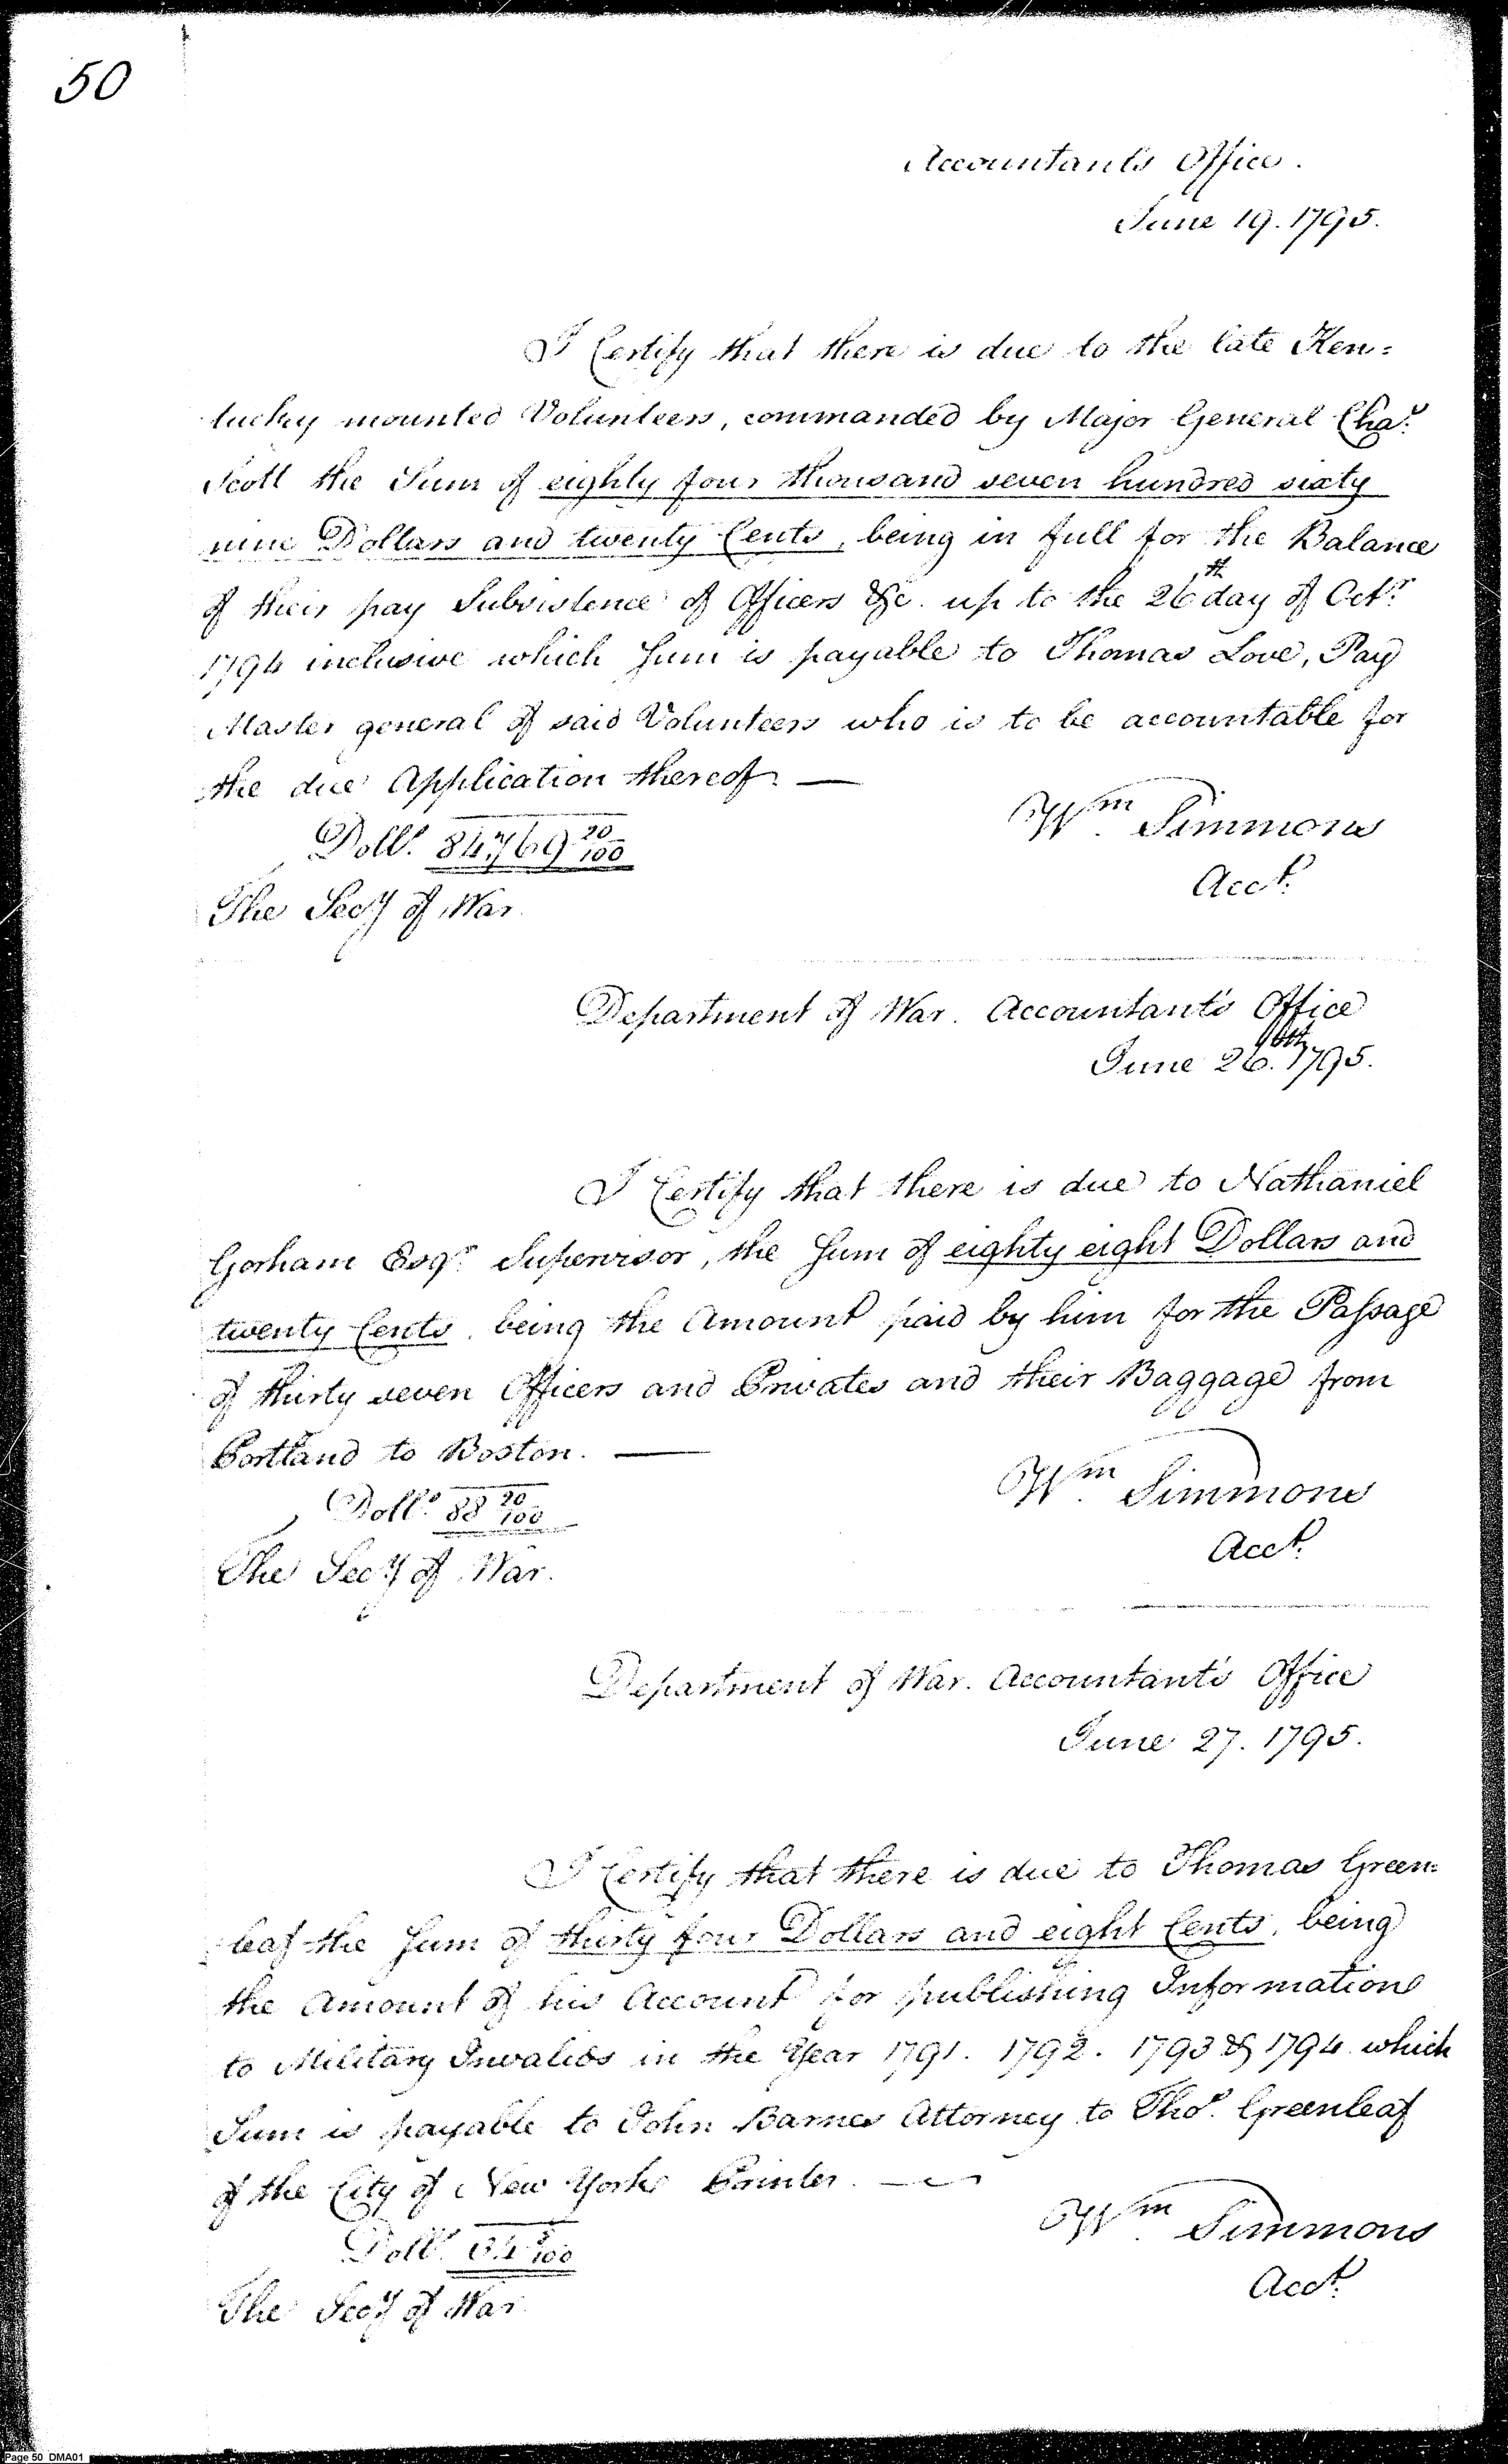 50
Accountants Office.
June 19. 1795.
I Certify that there is due to the late Ken=
tucky mounted Volunteers, commanded by Major General Cha.s
Scott the Sum of eighty four thousand seven hundred sixty
nine Dollars and twenty Cents, being in full for the Balance
of their pay Subsistence of Officers &c. up to the 26th day of Oct.r
1794 inclusive which Sum is payable to Thomas Love, Pay
Master general of said Volunteers who is to be accountable for
the due Application thereof. —
Doll.s 84,769 20/100
Wm. Simmons
Acct.
The Secy of War.
Department of War. Accountant's Office
June 26.th 1795.
I Certify that there is due to Nathaniel
Gorham Esq.r Supervisor, the Sum of eighty eight Dollars and
twenty Cents, being the Amount paid by him for the Passage
of thirty seven Officers and Privates and their Baggage from
Portland to Boston. —
Doll.s 88 20/100
Wm. Simmons
Acct.
The Secy of War.
Department of War. Accountant's Office
June 27. 1795.
I Certify that there is due to Thomas Green=
leaf the Sum of thirty four Dollars and eight Cents, being
the Amount of his Account for publishing Informations
to Military Invalids in the Year 1791. 1792. 1793 & 1794 which
Sum is payable to John Barnes Attorney to Tho.s Greenleaf
of the City of New York Printer. —
Doll.s 34 8/100
Wm. Simmons
Acct.
The Secy of War.
Page 50 DMA01